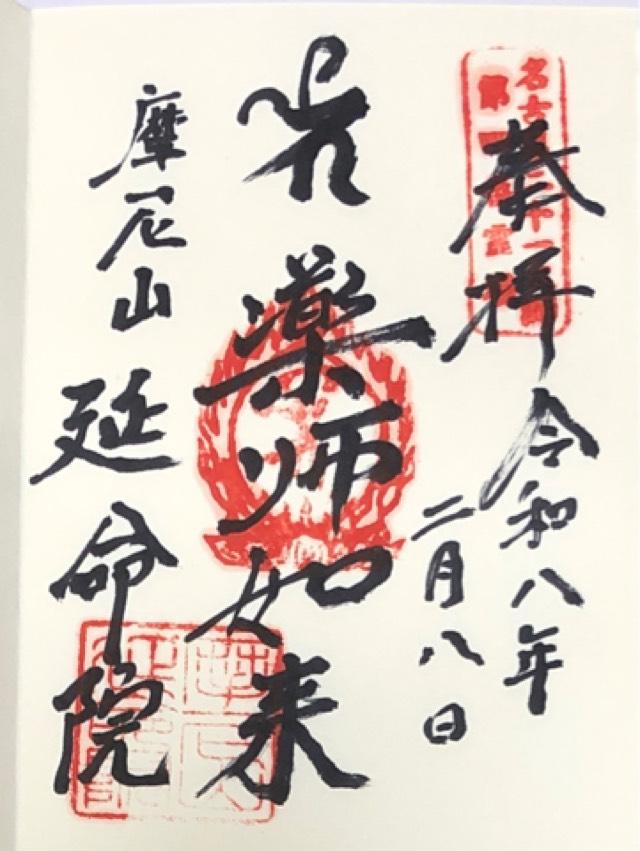 奉拝
令和八年
二月八日
薬師如来
摩尼山
延命院